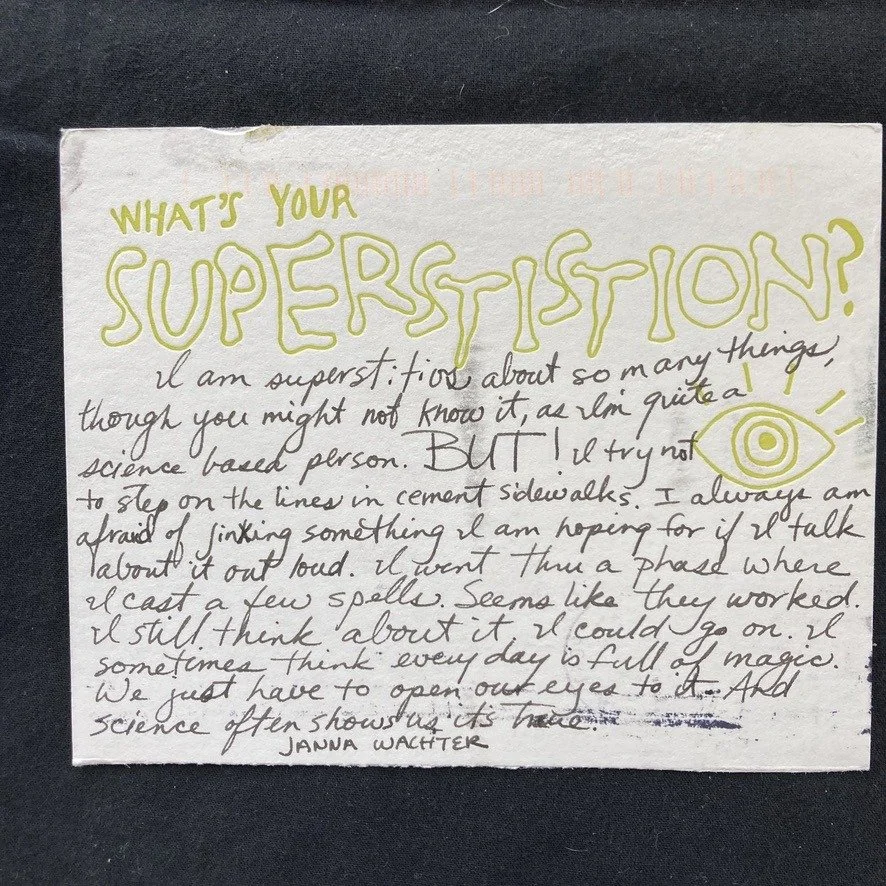 WHAT'S YOUR
SUPERSTISTION?
I am superstitios about so many things,
though you might not know it, as I'm quite a
science based person. BUT! I try not
to step on the lines in cement sidewalks. I always am
afraid of jinXing something I am hoping for if I talk
about it out loud. I went thru a phase where
I cast a few spells. Seems like they worked.
I still think about it I could go on. I
sometimes think every day is full of magic.
We just have to open our eyes to it. And
science often shows us it's True.
JANNA WACHTER